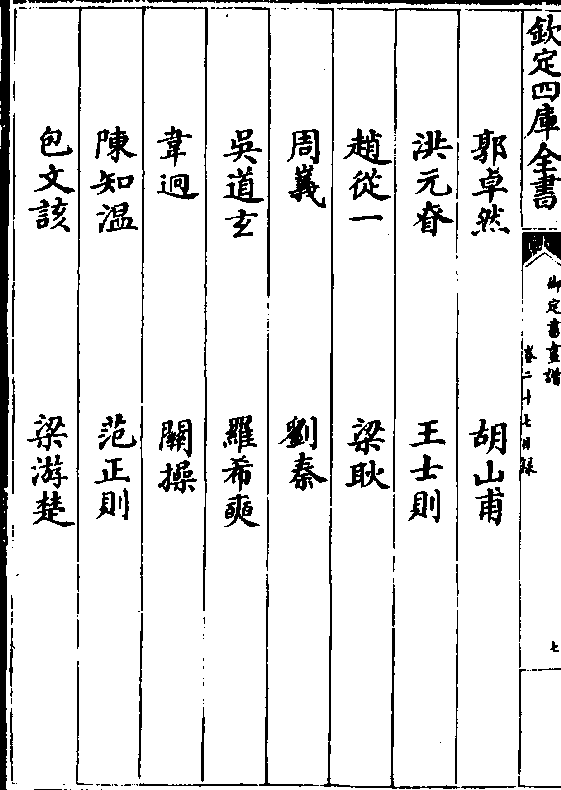 欽定四庫全書
御定書畫譜
卷二十七目錄
七
郭卓然 胡山甫
洪元眘 王士則
趙從一 梁耿
周嶬 劉秦
吳道玄 羅希奭
韋迥 關操
陳知温 范正則
包文該 梁游楚